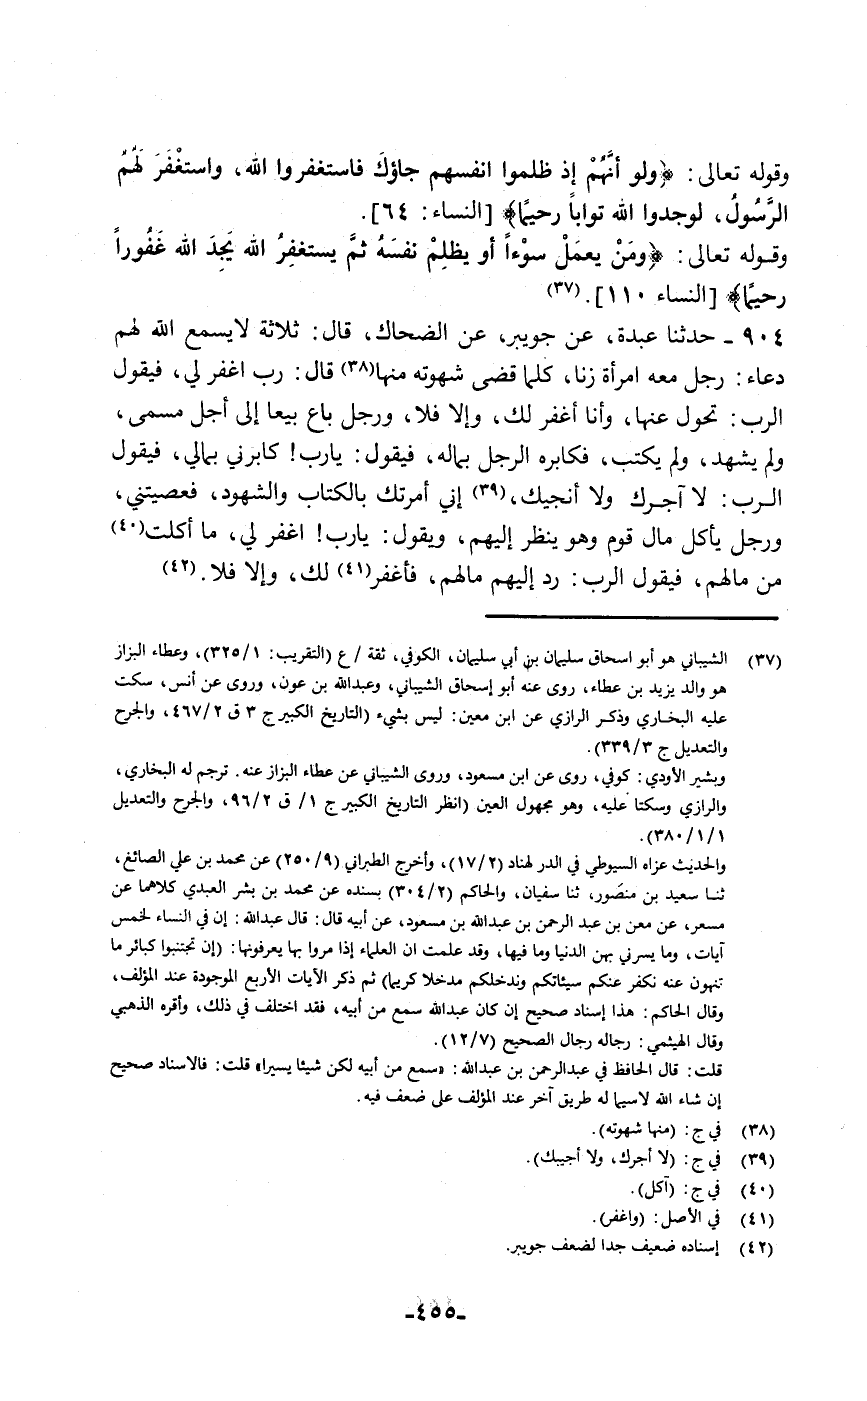 وقوله تعالى: ﴿ولو أنَّهُمْ إذ ظلموا انفسهم جاؤكَ فاستغفروا الله، واستغْفَرَ لَهُمُ
الرَّسُولُ، لوجدوا الله تواباً رحيمًا﴾ [النساء: ٦٤].
وقوله تعالى: ﴿ومَنْ يعمَلْ سوْءاً أو يظلِمْ نفسَهُ ثمَّ يستغفرُ الله يَجِدَ الله غَفُوراً
رحيمًا﴾ [النساء ١١٠].(٣٧)
٩٠٤ - حدثنا عبدة، عن جويبر، عن الضحاك، قال: ثلاثة لايسمع الله لهم
دعاء: رجل معه امرأة زنا، كلما قضى شهوته منها(٣٨) قال: رب اغفر لي، فيقول
الرب: تحول عنها، وأنا أغفر لك، وإلا فلا، ورجل باع بيعا إلى أجل مسمى،
ولم يشهد، ولم يكتب، فكابره الرجل بماله، فيقول: يارب! كابرني بمالي، فيقول
الرب: لا آجرك ولا أنجيك،(٣٩) إني أمرتك بالكتاب والشهود، فعصيتني،
ورجل يأكل مال قوم وهو ينظر إليهم، ويقول: يارب! اغفر لي، ما أكلت(٤٠)
من مالهم، فيقول الرب: رد إليهم مالهم، فأغفر(٤١) لك، وإلا فلا.(٤٢)
(٣٧) الشيباني هو أبو اسحاق سليمان بن أبي سليمان، الكوفي، ثقة / ع (التقريب: ٣٢٥/١)، وعطاء البزاز
هو والد يزيد بن عطاء، روى عنه أبو إسحاق الشيباني، وعبدالله بن عون، وروى عن أنس، سكت
عليه البخاري وذكر الرازي عن ابن معين: ليس بشيء (التاريخ الكبير ج ٣ ق ٤٦٧/٢، والجرح
والتعديل ج ٣٣٩/٣).
وبشير الأودي: كوفي، روى عن ابن مسعود، وروى الشيباني عن عطاء البزاز عنه. ترجم له البخاري،
والرازي وسكتا عليه، وهو مجهول العين (انظر التاريخ الكبير ج ١/ ق ٩٦/٢، والجرح والتعديل
٣٨٠/١/١).
والحديث عزاه السيوطي في الدر لهناد (١٧/٢)، وأخرج الطبراني (٢٥٠/٩) عن محمد بن علي الصائغ،
ثنا سعيد بن منصور، ثنا سفيان، والحاكم (٣٠٤/٢) بسنده عن محمد بن بشر العبدي كلاهما عن
مسعر، عن معن بن عبد الرحمن بن عبدالله بن مسعود، عن أبيه قال: قال عبدالله: إن في النساء لخمس
آيات، وما يسرني بهن الدنيا وما فيها، وقد علمت ان العلماء إذا مروا بها يعرفونها: (إن تجتنبوا كبائر ما
تنهون عنه نكفر عنكم سيئاتكم وندخلكم مدخلا كريما) ثم ذكر الآيات الأربع الموجودة عند المؤلف،
وقال الحاكم: هذا إسناد صحيح إن كان عبدالله سمع من أبيه، فقد اختلف في ذلك، وأقره الذهبي
وقال الهيثمي: رجاله رجال الصحيح (١٢/٧).
قلت: قال الحافظ في عبدالرحمن بن عبدالله: «سمع من أبيه لكن شيئا يسيرا» قلت: فالاسناد صحيح
إن شاء الله لاسيما له طريق آخر عند المؤلف على ضعف فيه.
(٣٨) في ج: (منها شهوته).
(٣٩) في ج: (لا أجرك، ولا أجيبك).
(٤٠) في ج: (آكل).
(٤١) في الأصل: (واغفر).
(٤٢) إسناده ضعيف جدا لضعف جويبر.
-٤٥٥-